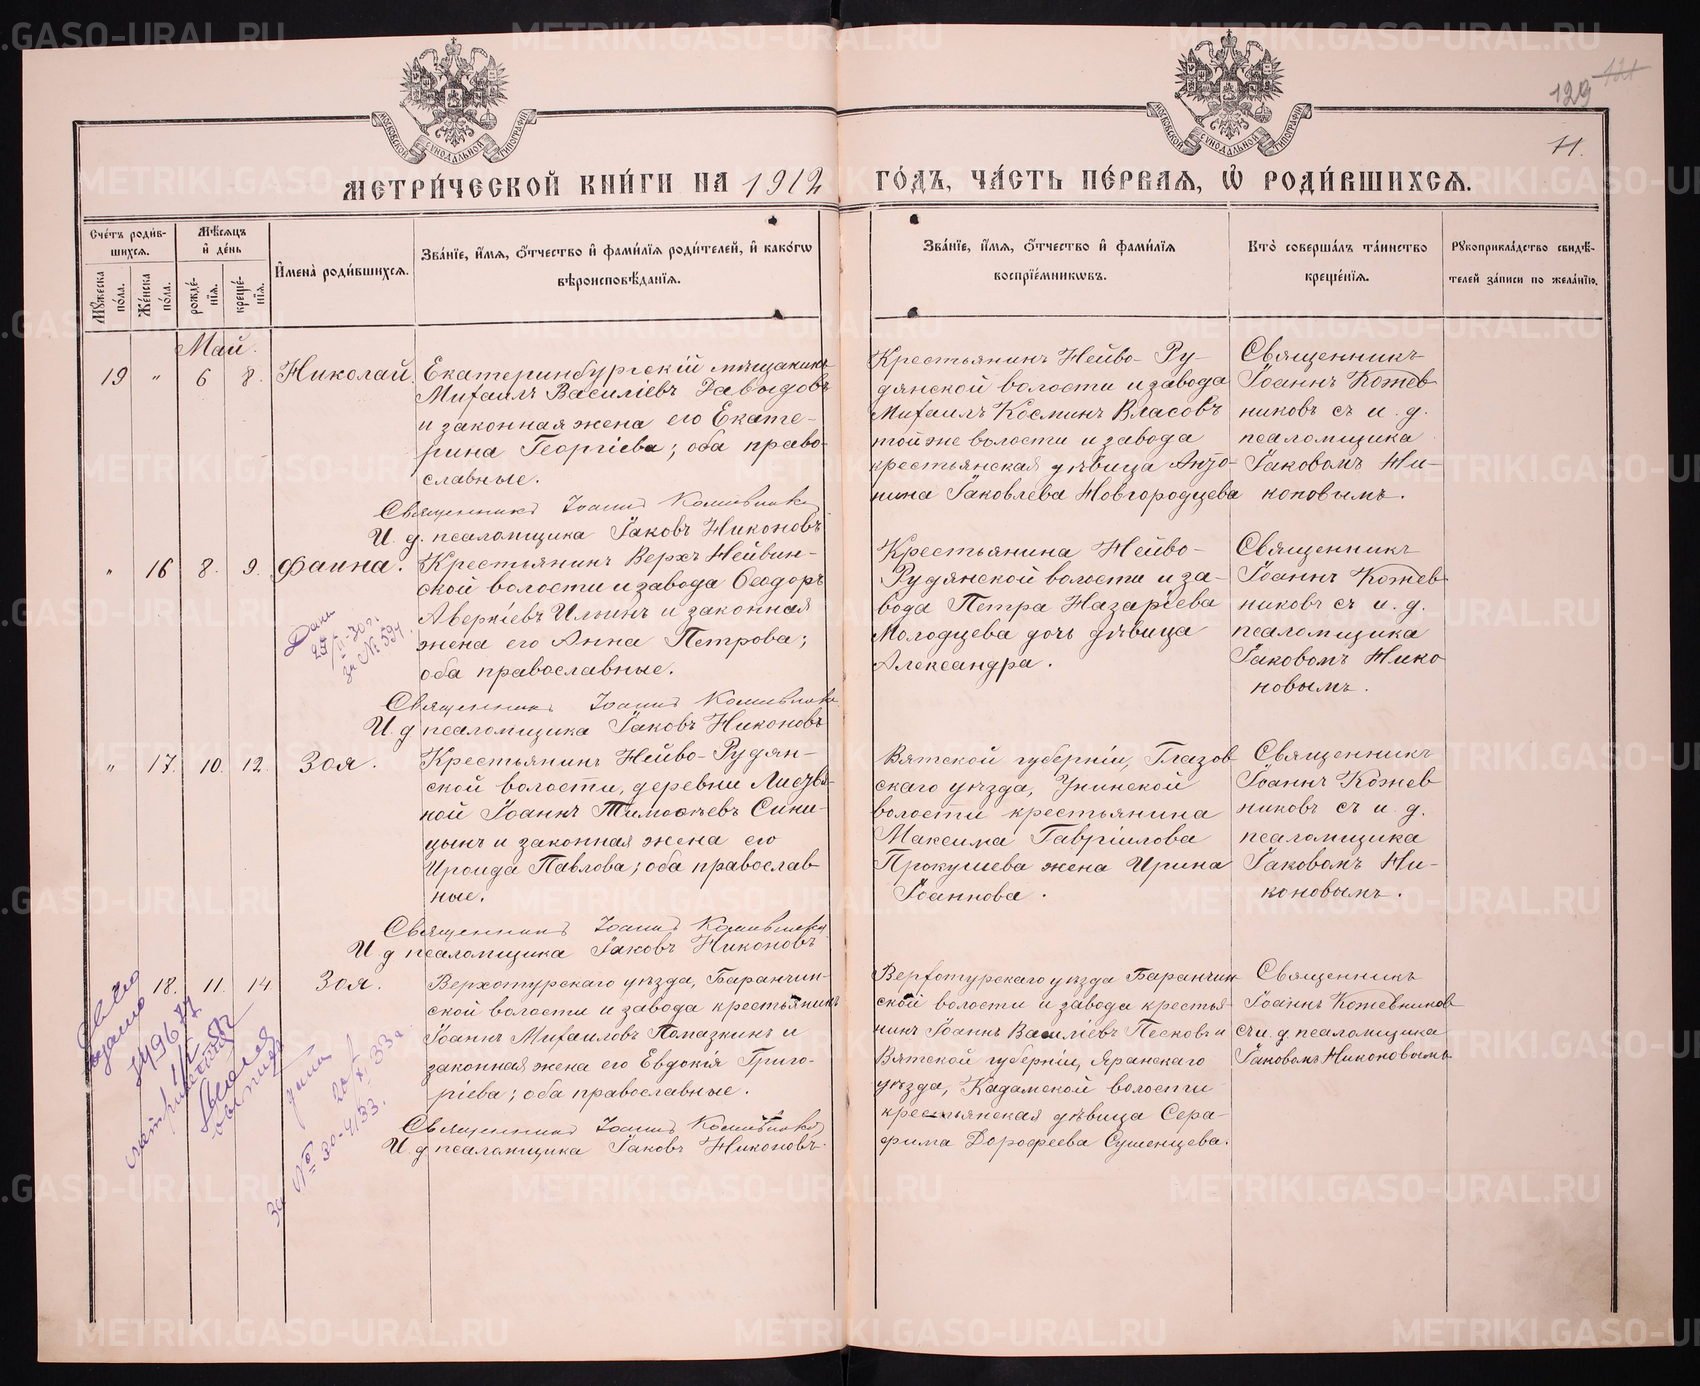 129 121
11.
МОСКОВСКОЙ СѴНОДАЛЬНОЙ ТИПОГРАФІИ
МОСКОВСКОЙ СѴНОДАЛЬНОЙ ТИПОГРАФІИ
МЕТРИ́ЧЕСКОЙ КНИ́ГИ НА 1912 ГО́ДЪ, ЧА́СТЬ ПЕ́РВАЯ, Ѡ҆ РОДИ́ВШИХСЯ.
Сче́тъ роди́в-
шихся.
Мѣ́сяцъ
и҆ де́нь
Мꙋ́жеска по́ла.
Же́нска по́ла.
рожде́-
нїя.
креще́-
нїя.
И҆мена̀ роди́вшихся.
Зва́нїе, и҆́мя, ѻ҆́тчество и҆ фами́лїя роди́телей, и҆ како́гѡ
вѣроисповѣ́данїя.
Зва́нїе, и҆́мя, ѻ҆́тчество и҆ фами́лїя
воспрїе́мникѡвъ.
Кто̀ соверша́лъ та́инство
креще́нїя.
Рꙋкоприкла́дство свидѣ́-
телей за́писи по жела́нїю.
Май.
19 " 6 8. Николай.
Екатеринбургскій мѣщанинъ
Михаилъ Василіевъ Давыдовъ
и законная жена его Екате-
рина Георгіева; оба право-
славные.
Священникъ Іоаннъ Кожевников
И. д. псаломщика Іаковъ Никоновъ
Крестьянинъ Нейво-Ру-
дянской волости и завода
Михаилъ Косминъ Власовъ
той же волости и завода
крестьянская дѣвица Анто-
нина Іаковлева Новгородцева
Священникъ
Іоаннъ Кожев
никовъ съ и. д.
псаломщика
Іаковомъ Ни-
коновымъ.
" 16 8. 9. Фаина.
Крестьянинъ Верхъ Нейвин-
ской волости и завода Ѳеодоръ
Аверкіевъ Ильинъ и законная
жена его Анна Петрова;
оба православные.
Священникъ Іоаннъ Кожевников
И. д псаломщика Іаковъ Никоновъ
за № 534
Крестьянина Нейво-
Рудянской волости и за-
вода Петра Назаріева
Молодцева дочь дѣвица
Александра.
Священникъ
Іоаннъ Кожев
никовъ съ и. д.
псаломщика
Іаковомъ Нико
новымъ.
" 17. 10. 12. Зоя.
Крестьянинъ Нейво-Рудян-
ской волости, деревни
ной Іоаннъ Тимоѳеевъ Сини-
цынъ и законная жена его
Ираида Павлова; оба православ
ные.
Священникъ Іоаннъ Кожевников
И. д псаломщика Іаковъ Никоновъ
Вятской губерніи, Глазов
скаго уѣзда, Унинской
волости крестьянина
Максима Гавріилова
Прокушева жена Ирина
Іоаннова.
Священникъ
Іоаннъ Кожев
никовъ съ и. д.
псаломщика
Іаковомъ Ни-
коновымъ.
18. 11. 14 Зоя.
Верхотурскаго уѣзда, Баранчин-
ской волости и завода крестьянинъ
Іоаннъ Михаиловъ Помазкинъ и
законная жена его Евдокія Григо-
ріева; оба православные.
Священникъ Іоаннъ Кожевников
И. д псаломщика Іаковъ Никоновъ
Верхотурскаго уѣзда Баранчин
ской волости и завода крестья-
нинъ Іоаннъ Василіевъ Песковъ и
Вятской губерніи, Яранскаго
уѣзда, Кадамской волости
крестьянская дѣвица Сера-
фима Дороѳеева Сушенцева.
Священникъ
Іоаннъ Кожевников
съ и. д псаломщика
Іаковомъ Никоновымъ